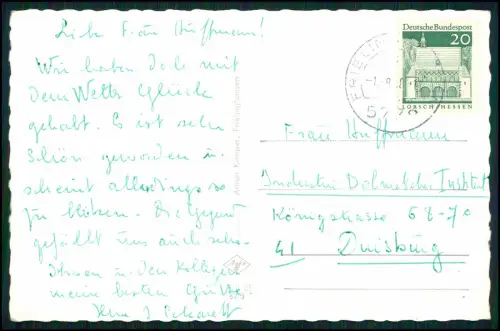 Liebe Frau Hüffmann!
Wir haben Dole mit
dem Wetter Glück
gehabt. Es ist sehr
schön geworden u.
scheint allerdings so
zu bleiben. Die Gegend
gefällt uns auch sehr.
Ihnen u. den Kollegen
meine besten Grüße
Ihre J. Eckardt
Deutsche Bundespost
20
LORSCH/HESSEN
Frau Hüffmann
Dolmetscher Institut
Königstrasse 68-70
41 Duisburg